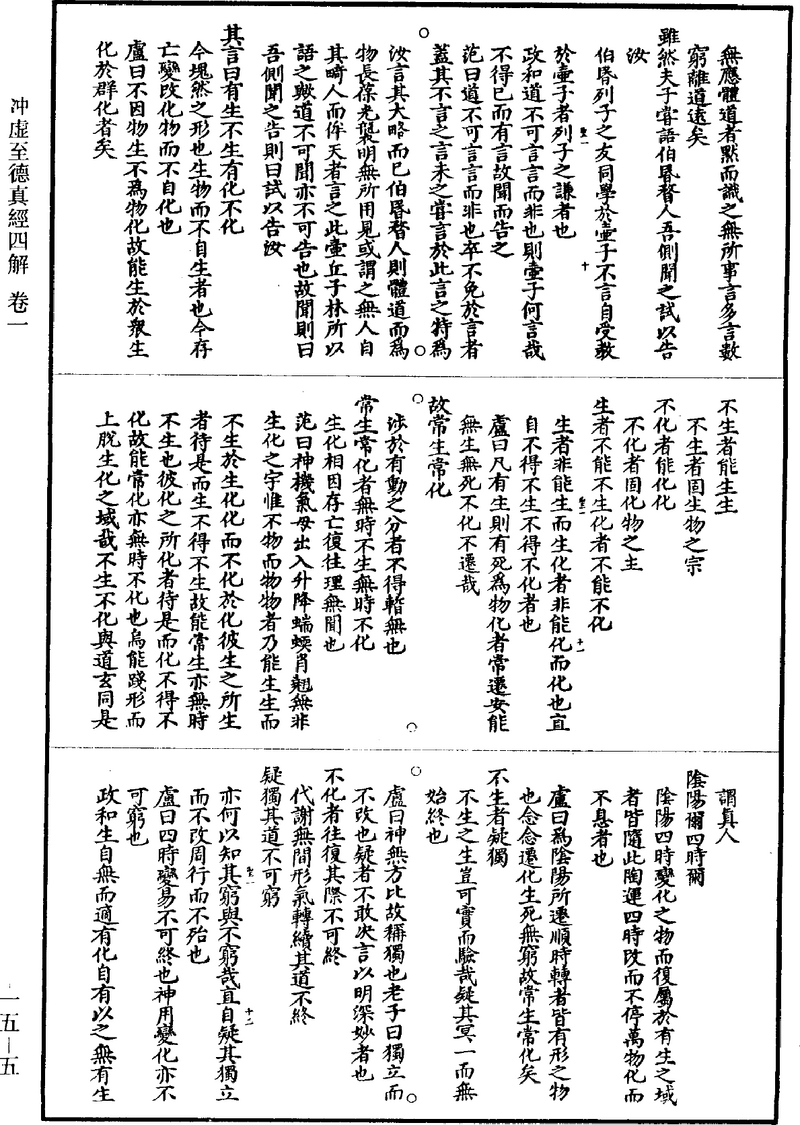 冲虛至德真經四解　卷一
無應體道者默而識之無所事言多言數
窮離道遠矣
雖然夫子嘗語伯昬瞀人吾側聞之試以告
汝
伯昬列子之友同學於壺子不言自受教
於壺子者列子之謙者也
政和道不可言言而非也則壺子何言哉
不得已而有言故聞而告之
范曰道不可言言而非也卒不免於言者
蓋其不言之言未之嘗言於此言之特為
汝言其大略而已伯昬瞀人則體道而為
物長葆光襲明無所用見或謂之無人自
其畸人而侔天者言之此壺丘子林所以
語之歟道不可聞亦不可告也故聞則曰
吾側聞之告則曰試以告汝
其言曰有生不生有化不化
今塊然之形也生物而不自生者也今存
亡變改化物而不自化也
盧曰不因物生不為物化故能生於衆生
化於群化者矣
不生者能生生
不生者固生物之宗
不化者能化化
不化者固化物之主
生者不能不生化者不能不化
生者非能生而生化者非能化而化也直
自不得不生不得不化者也
盧曰凡有生則有死為物化者常遷安能
無生無死不化不遷哉
故常生常化
涉於有動之分者不得暫無也
常生常化者無時不生無時不化
生化相因存亡復往理無間也
范曰神機氣母出入升降蝡蝡肖翹無非
生化之宇惟不物而物物者乃能生生而
不生於生化化而不化於化彼生之所生
者待是而生不得不生故能常生亦無時
不生也彼化之所化者待是而化不得不
化故能常化亦無時不化也烏能踐形而
上脫生化之域哉不生不化與道玄同是
謂真人
陰陽爾四時爾
陰陽四時變化之物而復屬於有生之域
者皆隨此陶運四時改而不停萬物化而
不息者也
盧曰為陰陽所遷順時轉者皆有形之物
也念念遷化生死無窮故常生常化矣
不生者疑獨
不生之生豈可實而驗哉疑其冥一而無
始終也
盧曰神無方比故稱獨也老子曰獨立而
不改也疑者不敢決言以明深妙者也
不化者往復其際不可終
代謝無間形氣轉續其道不終
疑獨其道不可窮
亦何以知其窮與不窮哉直自疑其獨立
而不改周行而不殆也
盧曰四時變易不可終也神用變化亦不
可窮也
政和生自無而適有化自有以之無有生
一五—五